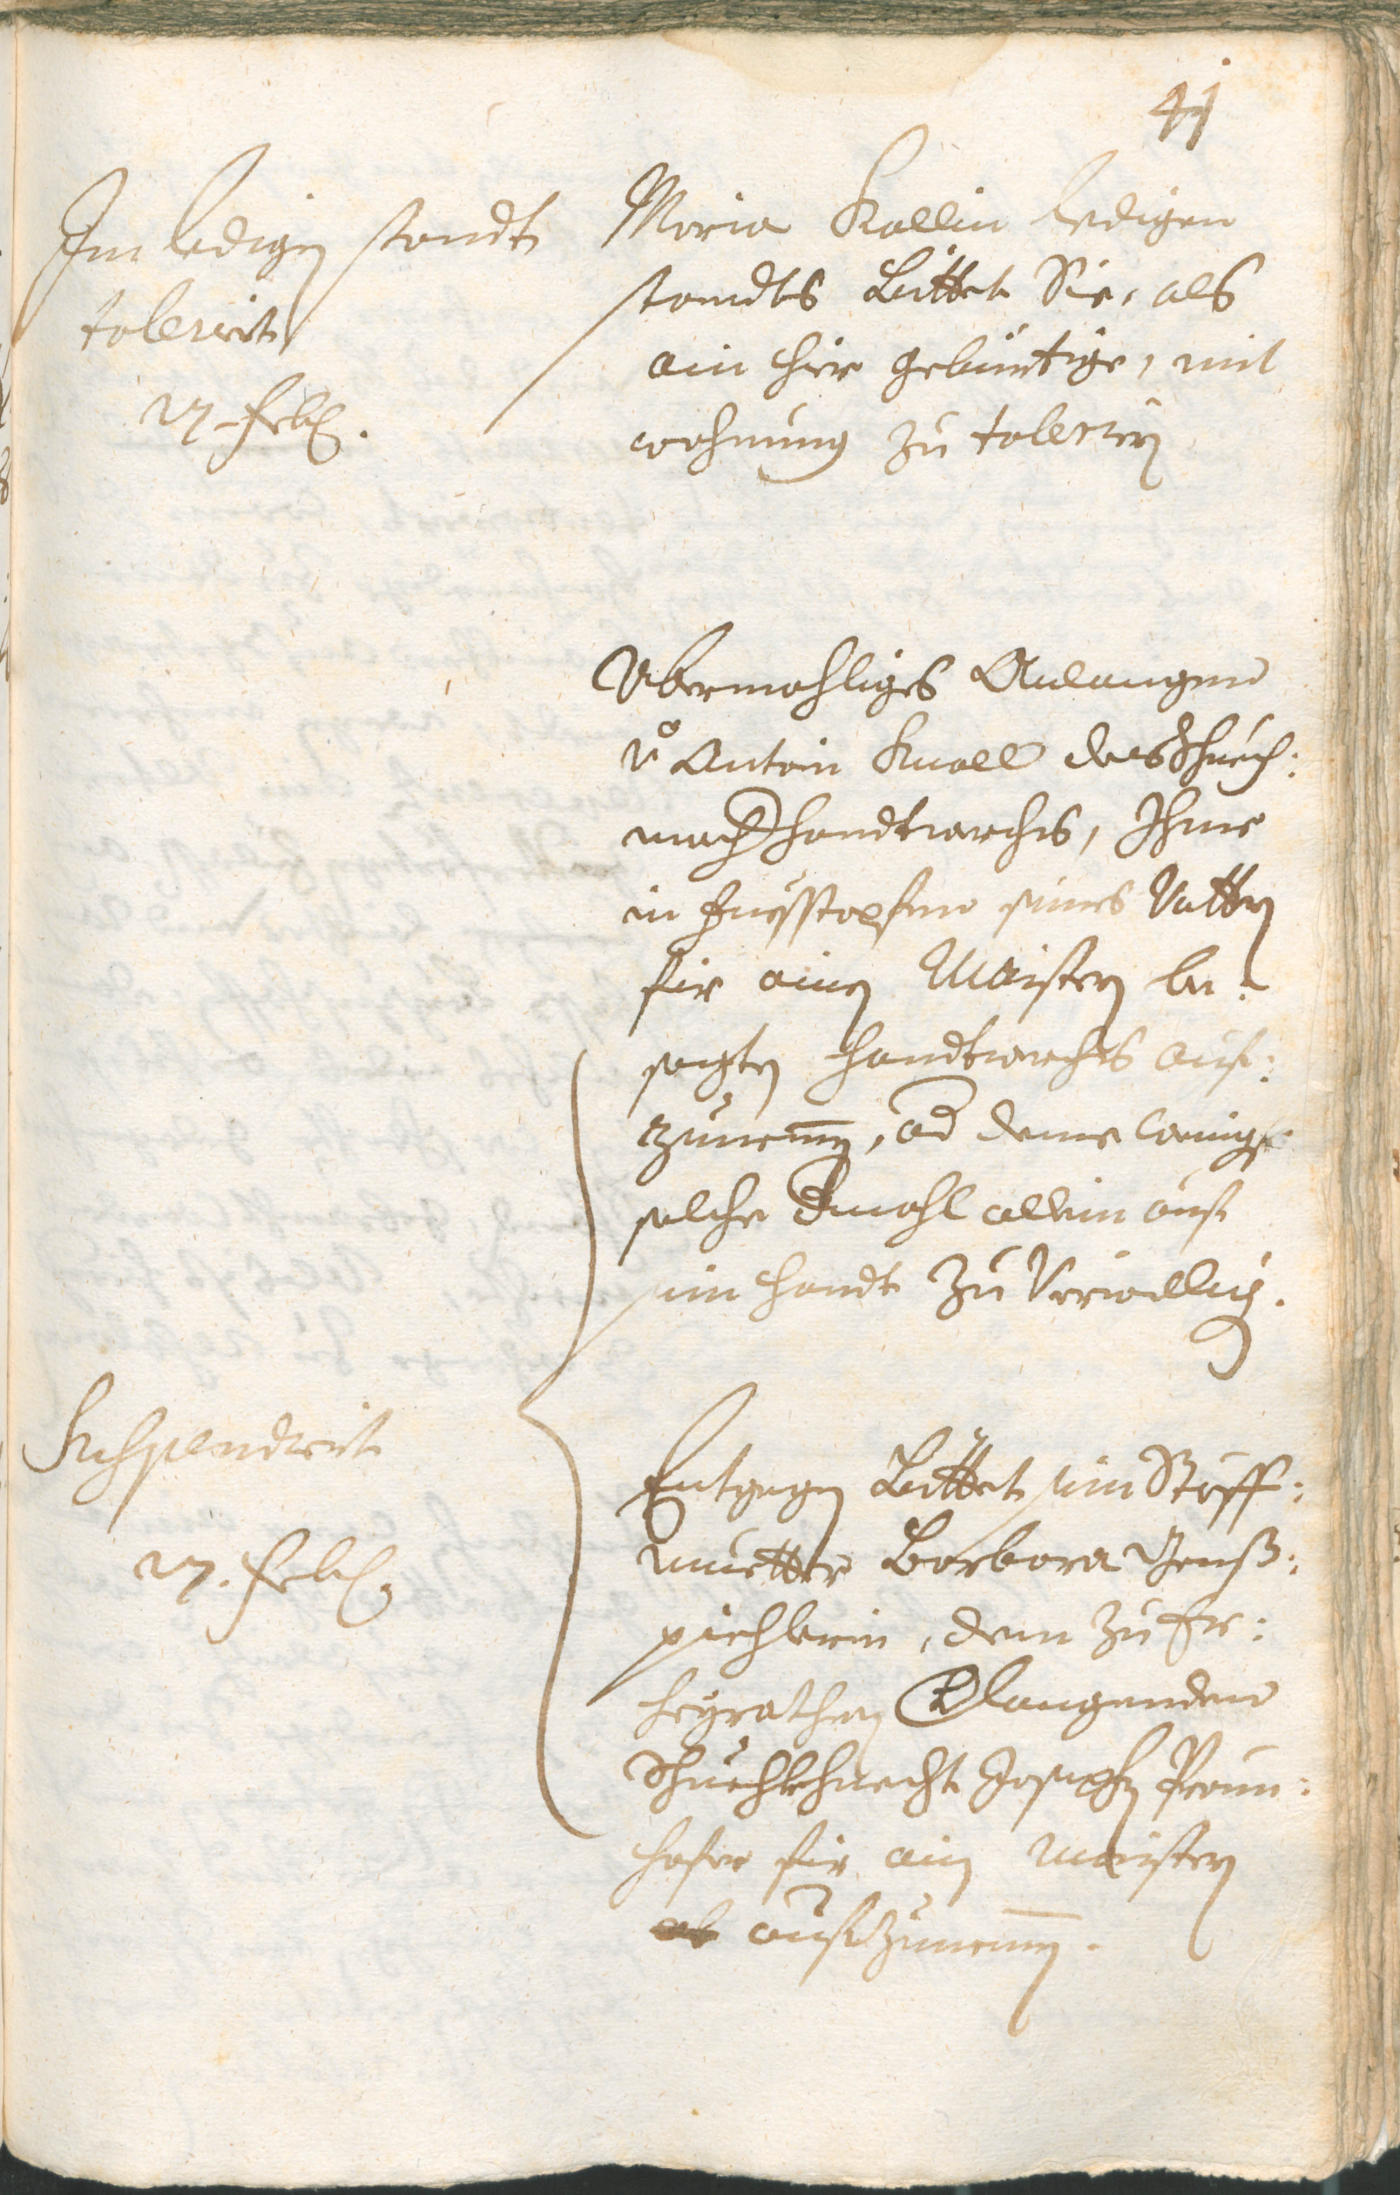 41
Im ledigen standt
tolerirt
17. Feb.
Maria Kallin ledigen
standts bittet Sie, als
ein hier gebürtige, mit
wohnung zu toleriren
Abermahliges Anlangen
Antoni Knoll des Schuech:
macher handtwerchs, Ihme
in Fuesstapfen seines Vatters
für einen Maistern be:
sagten handtwerchs auf:
zunemen, od deme
solche allein auf
sein handt zu Verwilligen.
Suspendirt
17. Feb.
Entgegen bittet sein Stüff:
muetter Barbara
pichlerin, dem zu Er:
heyrathen Verlangenden
Schuechkhnecht Josephen Praun:
hofer für ein maistern
aufzunemen.